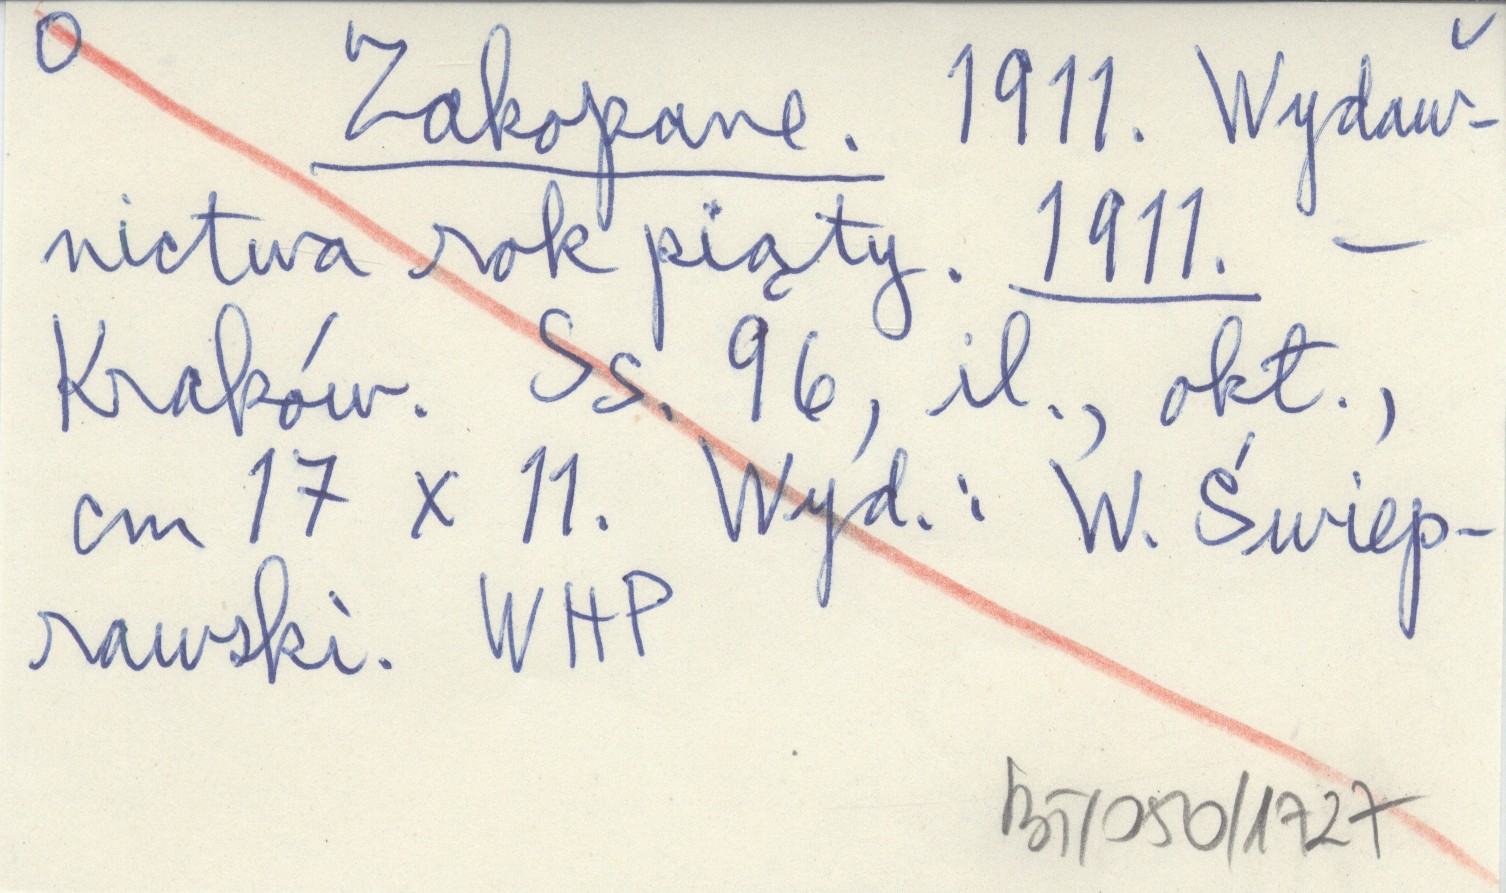 O
Zakopane. 1911. Wydaw-
nictwa rok piąty. 1911. –
Kraków. Ss. 96, il., okł.,
cm 17 x 11. Wyd.: W. Świep-
rawski. WHP
BT/050/1727